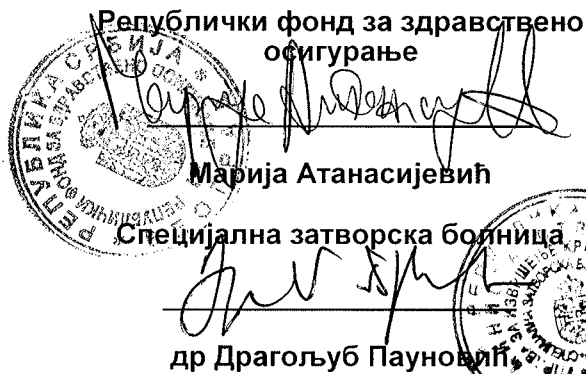 Републички фонд за здравствено
осигурање
Марија Атанасијевић
Специјална затворска болница
др Драгољуб Пауновић
РЕПУБЛИКА СРБИЈА